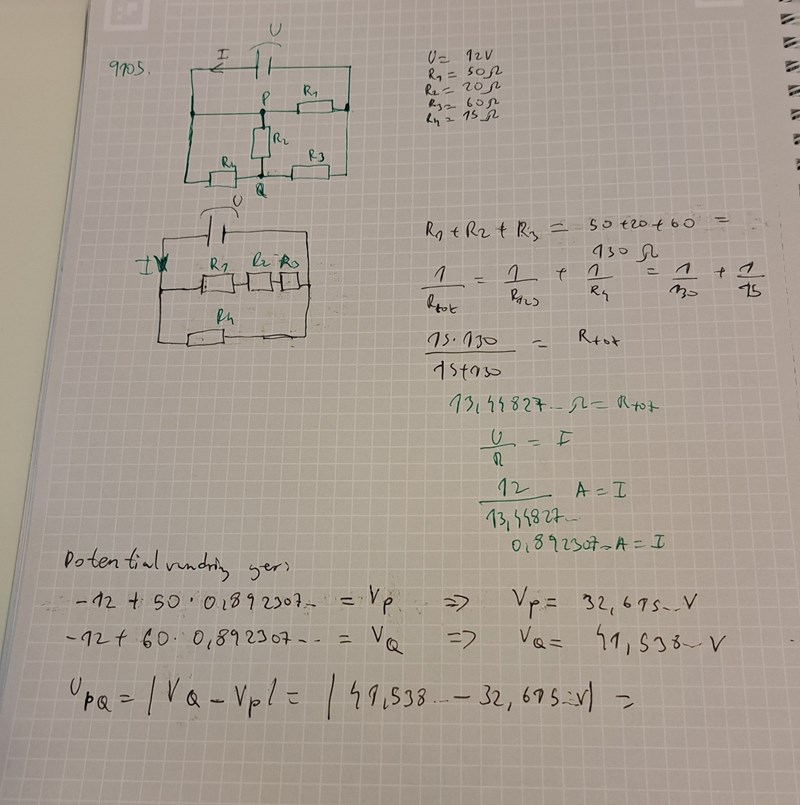 9105.
U
I
P
R1
R2
R4
R3
Q
U = 12V
R1 = 50Ω
R2 = 20Ω
R3 = 60Ω
R4 = 15Ω
U
I
R1 R2 R3
R4
R1 + R2 + R3 = 50 + 20 + 60 =
130 Ω
1/Rtot = 1/R123 + 1/R4 = 1/130 + 1/15
15·130/15+130 = Rtot
13,44827... Ω = Rtot
U/R = I
12/13,44827... A = I
0,892307... A = I
Potentialvandring ger:
-12 + 50 · 0,892307... = Vp => Vp = 32,615... V
-12 + 60 · 0,892307... = VQ => VQ = 41,538... V
UPQ = |VQ - Vp| = |41,538... - 32,615... V| =